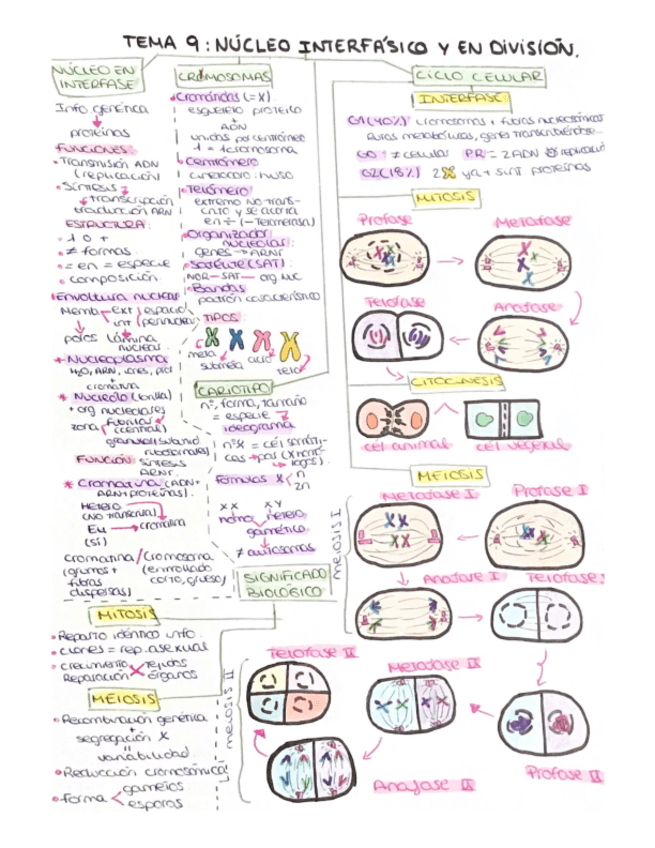 TEMA 9: NÚCLEO INTERFÁSICO Y EN DIVISIÓN.
NÚCLEO EN
INTERFASE
Info genética
proteínas
FUNCIONES
• Transmisión ADN
(replicación)
• Síntesis
transcripción
traducción ARN
ESTRUCTURA:
• 1 o +
• ≠ formas
• = en = especie
• composición
Envoltura nuclear
poros lámina
nuclear
* Nucleoplasma
H₂O, ARN, iones, prot
+
cromatina
* Nucleolo
+ org nucleolares
zona fibrilar
(central)
FUNCIÓN síntesis
ARNr
* Cromatina (ADN+
ARN+proteínas).
Hetero
(NO transcrita)
Eu → cromatina
(sí)
cromatina/cromosoma
(grumos + (enrollado
fibras corto, grueso)
dispersas)
CROMOSOMAS
• Cromátidas (=X)
esqueleto proteico
+
ADN
unidas por centrómero
1 = 1 cromosoma
• Centrómero
cinetocoro: huso
• Telómero
extremo NO trans-
crito y se acorta
en ÷ (- Telomerasa)
• Organizador
nucleolar:
genes → ARNr
• Satélite (SAT)
NOR - SAT — org NUC
• Bandas
patrón característico
TIPOS
meta
submeta
acro
telo
CARIOTIPO
nº, forma, tamaño
= especie
ideograma
nº X = cél somáti-
cas → pas (X homó-
logos).
fórmulas X n
2n
XX XY
homo hetero
gamético
≠ autosomas
SIGNIFICADO
BIOLÓGICO
MITOSIS
• Reparto idéntico info.
• clones = rep. asexual
• crecimiento tejidos
Reparación órganos
MEIOSIS
• Recombinación genética
+
segregación X
"
variabilidad
• Reducción cromosómica
• Forma gametos
esporas
CICLO CELULAR
INTERFASE
G1 (40%) cromosomas + fibras nucleosómicas
Rutas metabólicas, genes transcribiéndose...
G0 = ≠ celulas
G2 (18%) 2 ya + sint proteínas
MITOSIS
Profase
Metafase
Telofase
Anafase
CITOCINESIS
cél animal
cél vegetal
MEIOSIS
MEIOSIS I
Metafase I
Profase I
Anafase I
Telofase I
MEIOSIS II
Telofase II
Metafase II
Anafase II
Profase II